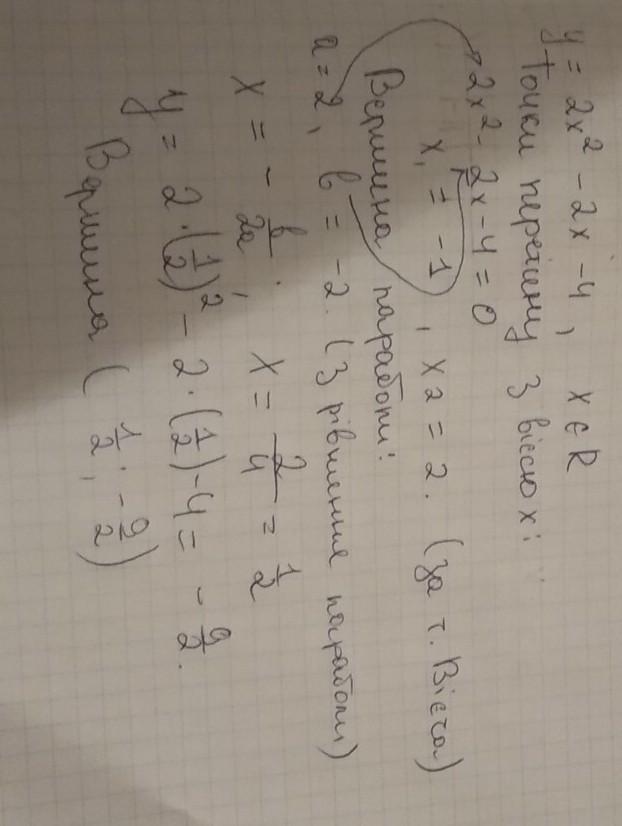 y = 2x² - 2x - 4, x ∈ R
Точки перетину з віссю x:
2x² - 2x - 4 = 0
x₁ = -1, x2 = 2. (за т. Вієта)
Вершина параболи:
a = 2, b = -2. (З рівняння параболи)
x = - b/2a; x = 2/4 = 1/2
y = 2·(1/2)² - 2·(1/2) - 4 = - 9/2.
Вершина (1/2; -9/2)